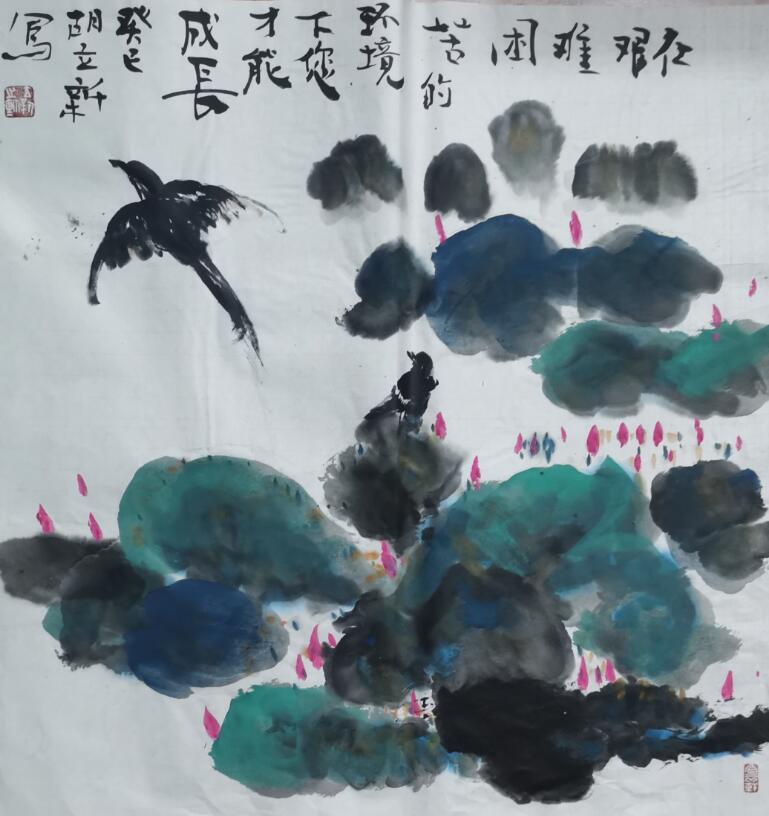 在艰难困
苦的
环境
下您
才能
成長
癸巳
胡立新
寫